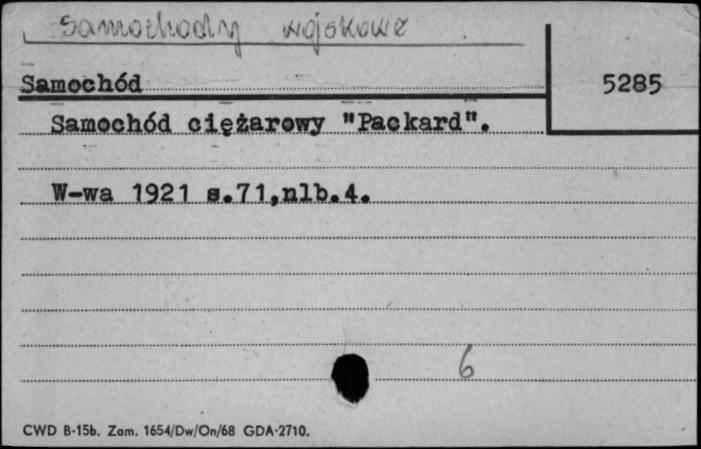 Samochody wojskowe
Samochód
5285
Samochód ciężarowy "Packard".
W-wa 1921 s.71,nlb.4.
6
CWD B-15b. Zam. 1654/Dw/On/68 GDA-2710.